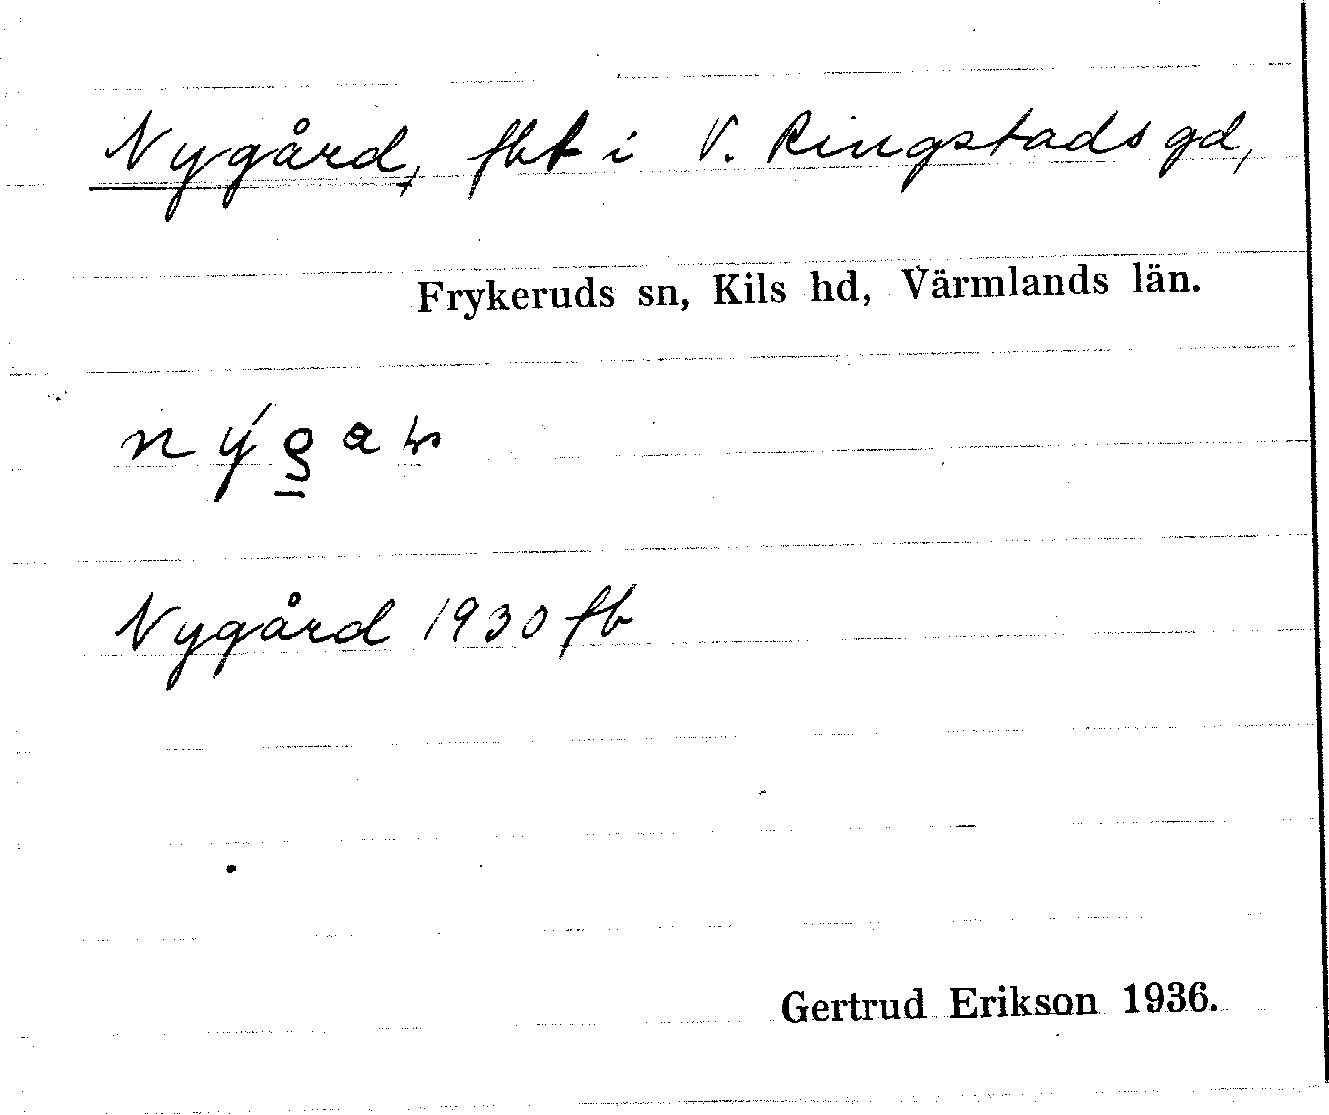 Nygård, fbt i V. Ringstads gd,
Frykeruds sn, Kils hd, Värmlands län.
Nygård 1930 fb
Gertrud Erikson 1936.